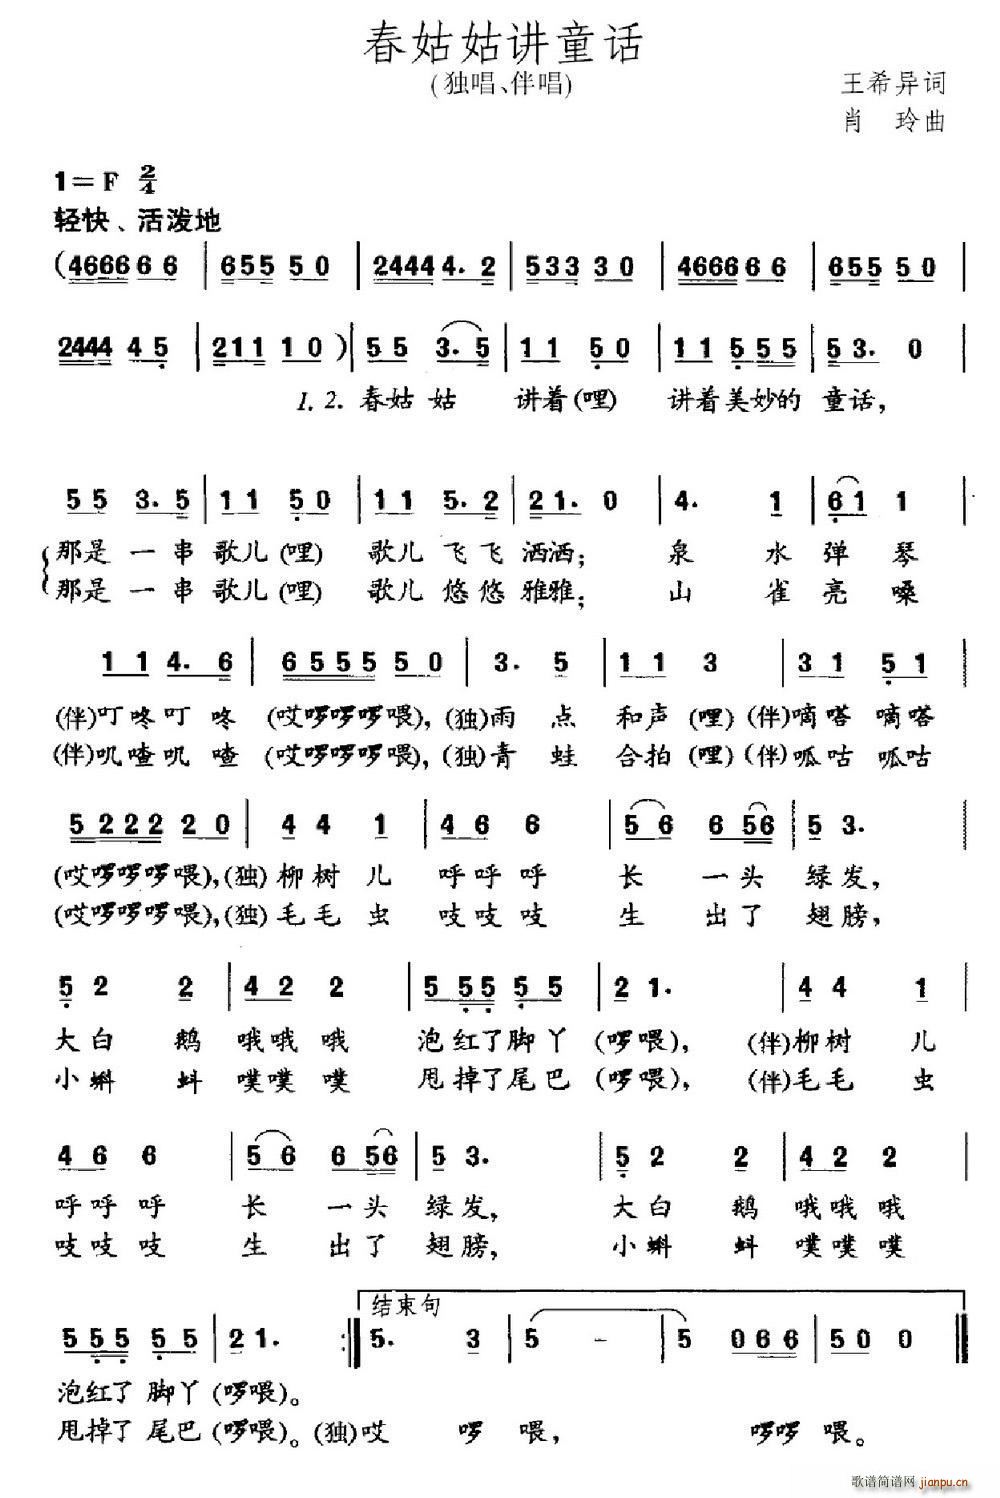 春姑姑讲童话
(独唱、伴唱)
王希异词
肖 玲曲
1=F 2/4
轻快、活泼地
(4666 6 6 | 655 5 0 | 2444 4. 2 | 533 3 0 | 4666 6 6 | 655 5 0 |
2444 4 5 | 211 1 0 ) | 5 5 3. 5 | 1 1 5 0 | 1 1 5 5 5 | 5 3. 0 |
1. 2. 春姑 姑 讲着(哩) 讲着美妙的 童话,
5 5 3. 5 | 1 1 5 0 | 1 1 5. 2 | 2 1. 0 | 4. 1 | 6 1 1
那是 一 串 歌儿(哩) 歌儿 飞飞 洒洒; 泉 水 弹 琴
那是 一 串 歌儿(哩) 歌儿 悠悠 雅雅; 山 雀 亮 嗓
1 1 4. 6 | 6 5 5 5 5 0 | 3. 5 | 1 1 3 | 3 1 5 1
(伴)叮咚叮 咚 (哎啰啰啰喂),(独)雨 点 和声(哩)(伴)嘀嗒 嘀嗒
(伴)叽喳叽 喳 (哎啰啰啰喂),(独)青 蛙 合拍(哩)(伴)呱咕 呱咕
5 2 2 2 2 0 | 4 4 1 | 4 6 6 | 5 6 6 56 | 5 3.
(哎啰啰啰喂),(独)柳树 儿 呼呼呼 长 一头 绿发,
(哎啰啰啰喂),(独)毛毛 虫 吱吱吱 生 出了 翅膀,
5 2 2 | 4 2 2 | 5 5 5 5 5 | 2 1. | 4 4 1 |
大白 鹅 哦哦哦 泡红了脚丫 (啰喂), (伴)柳树 儿
小蝌 蚪 噗噗噗 甩掉了尾巴 (啰喂), (伴)毛毛 虫
4 6 6 | 5 6 6 56 | 5 3. | 5 2 2 | 4 2 2
呼呼呼 长 一头 绿发, 大白 鹅 哦哦哦
吱吱吱 生 出了 翅膀, 小蝌 蚪 噗噗噗
结束句
5 5 5 5 5 | 2 1. :‖ 5. 3 | 5 - | 5 0 6 6 | 5 0 0 ‖
泡红了 脚丫 (啰喂)。
甩掉了 尾巴 (啰喂)。(独)哎 啰 喂, 啰啰 喂。
歌谱简谱网 jianpu.cn